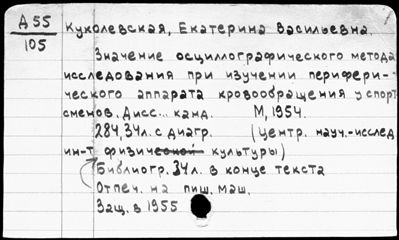 Д 55
105
Куколевская, Екатерина Васильевна.
Значение осциллографического метода
исследования при изучении перифери-
ческого аппарата кровообращения у спорт
сменов. Дисс... канд. М, 1954.
284, 34л. с диагр. (Центр. науч.-исслед
ин-т физической культуры)
Библиогр. 34л. в конце текста
Отпеч. на пиш. маш.
Защ. в 1955